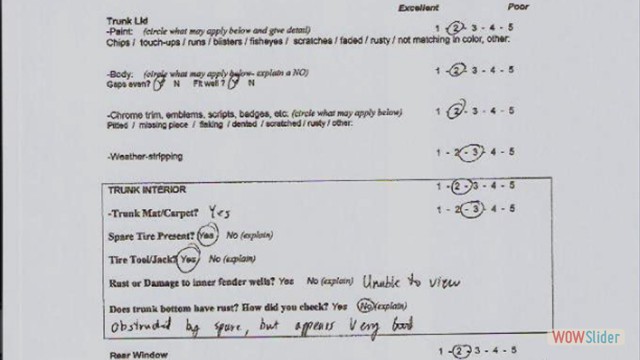 Excellent Poor
Trunk Lid
-Paint: (circle what may apply below and give detail) 1 - 2 - 3 - 4 - 5
Chips / touch-ups / runs / blisters / fisheyes / scratches / faded / rusty / not matching in color, other:
-Body: (circle what may apply below- explain a NO) 1 - 2 - 3 - 4 - 5
Gaps even? Y N Fit well ? Y N
-Chrome trim, emblems, scripts, badges, etc: (circle what may apply below) 1 - 2 - 3 - 4 - 5
Pitted / missing piece / flaking / dented / scratched / rusty / other:
-Weather-stripping 1 - 2 - 3 - 4 - 5
TRUNK INTERIOR 1 - 2 - 3 - 4 - 5
-Trunk Mat/Carpet? Yes 1 - 2 - 3 - 4 - 5
Spare Tire Present? Yes No (explain)
Tire Tool/Jack? Yes No (explain)
Rust or Damage to inner fender wells? Yes No (explain) Unable to view
Does trunk bottom have rust? How did you check? Yes No (explain)
obstructed by spare, but appears very good
Rear Window 1 - 2 - 3 - 4 - 5
WOWSlider